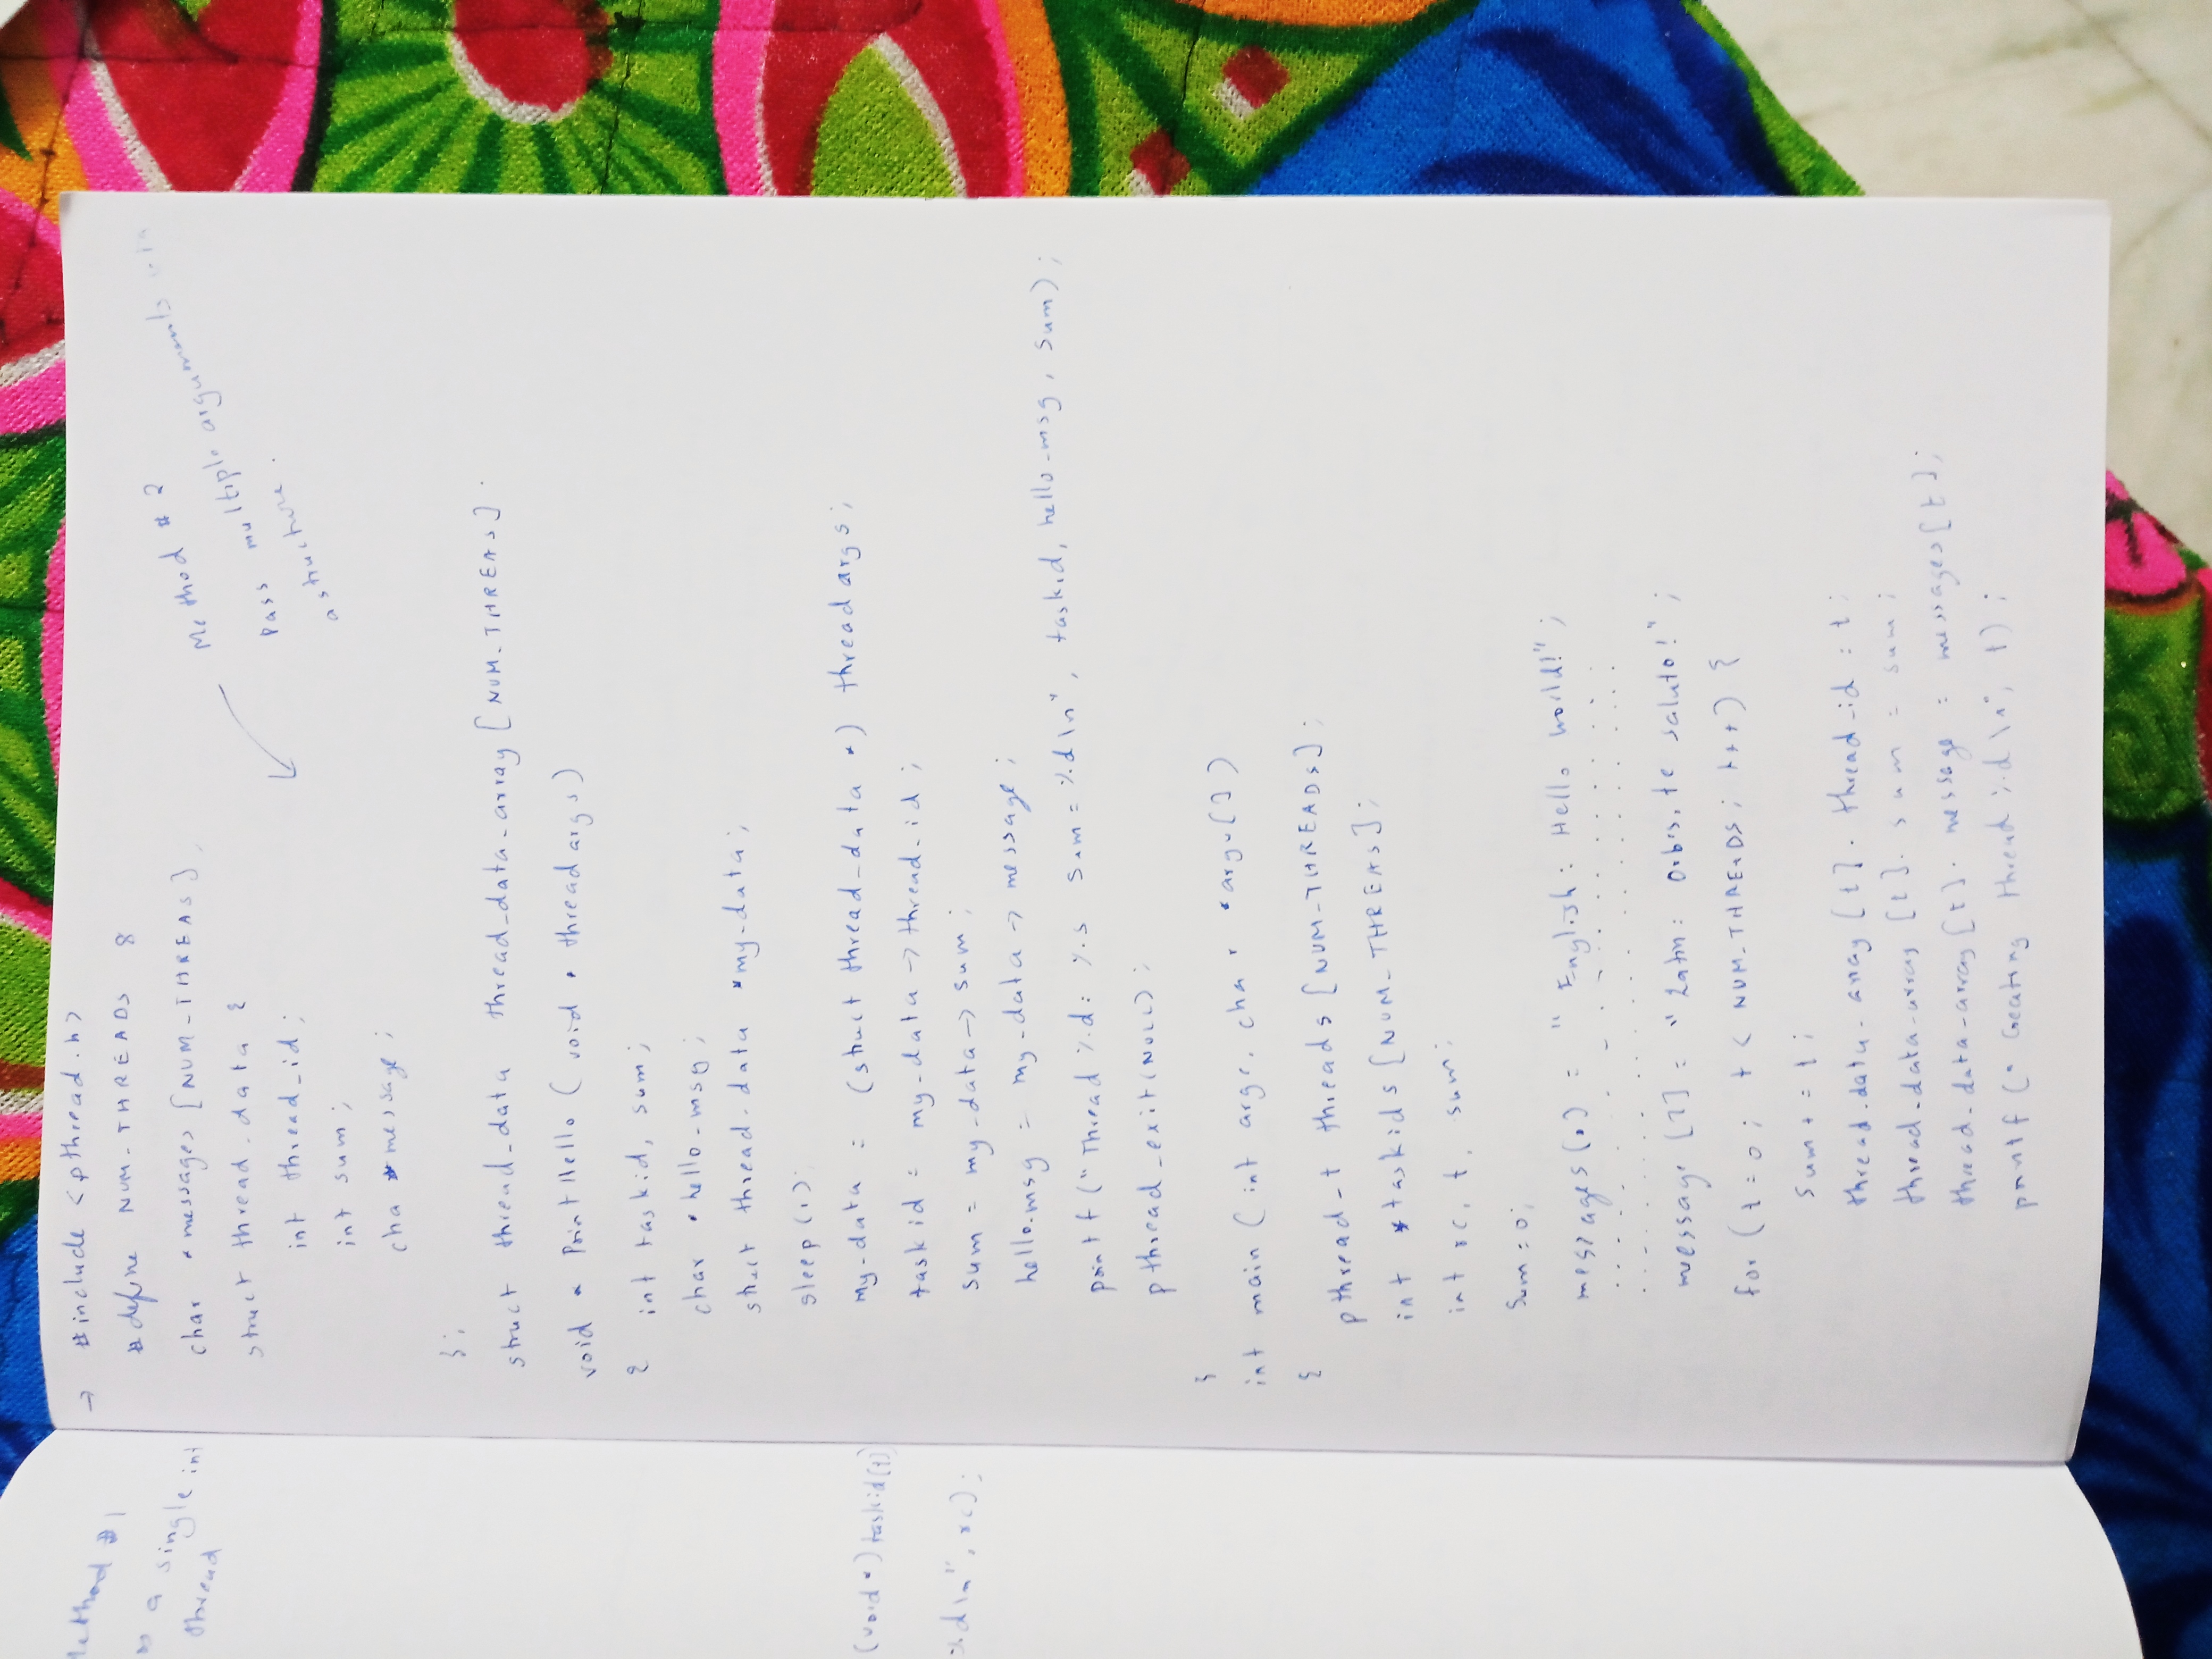 Method #1
a single int
thread
(void *) taskid[t]
%d\n", rc);
→ #include <pthread.h>
#define NUM_THREADS 8
Method #2
Pass multiple argumments via
a structure.
char *messages [NUM_THREAS],
struct thread_data {
int thread_id;
int sum;
cha *message;
};
struct thread_data thread_data_array [NUM_THREAS].
void * Print Hello (void * threadargs)
{ int taskid, sum;
char * hello_msg;
struct thread_data *my_data;
sleep(1);
my_data = (struct thread_data *) threadargs;
taskid = my_data -> thread_id;
sum = my_data -> sum;
hello_msg = my_data -> message;
printf ("Thread %d: %s sum = %d\n", taskid, hello_msg, sum);
pthread_exit(NULL);
}
int main (int argc, char *argv[])
{
pthread_t threads [NUM_THREADS];
int *taskids [NUM_THREAS];
int rc, t, sum;
sum=0;
messages(0) = "English: Hello world!";
message [7] = "Latin: Orbis, te saluto!";
for (t=0; t < NUM_THREADS; t++) {
sum + = t;
thread_data_array [t]. thread_id = t;
thread_data_array [t]. sum = sum;
thread_data_array [t]. message = messages[t];
printf (" Creating thread %d\n", t);